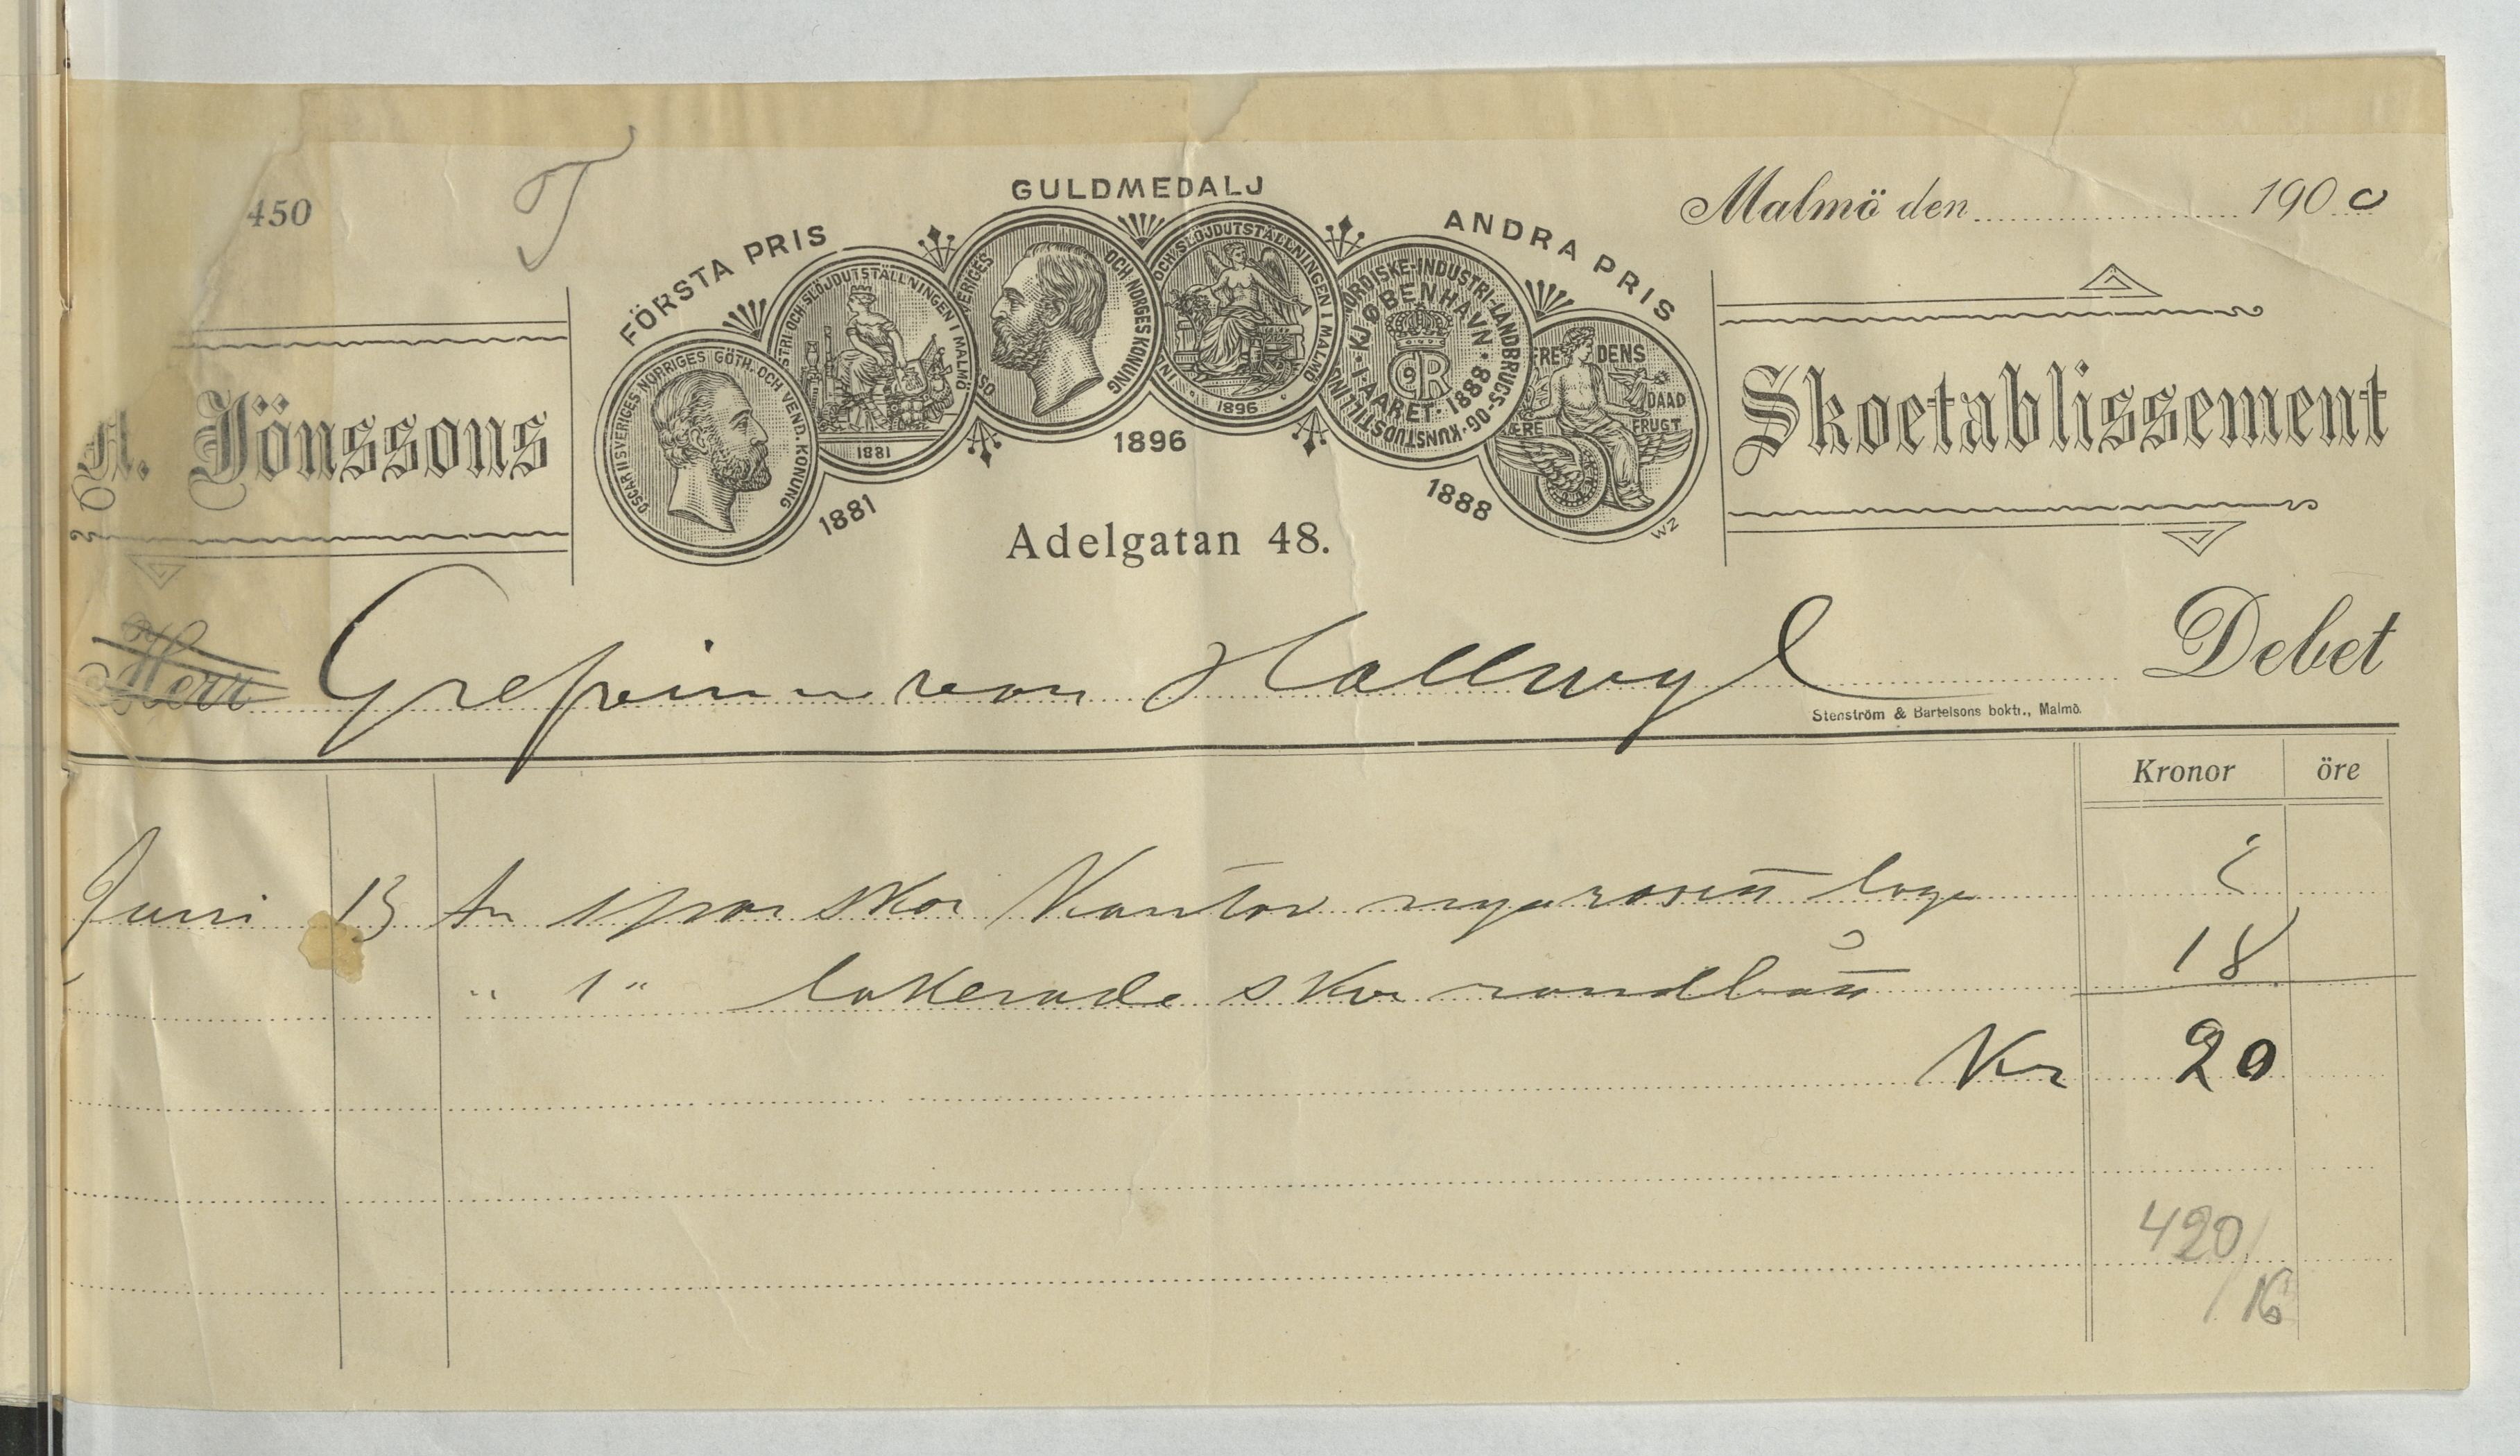 450
T
Malmö den 1900
FÖRSTA PRIS
GULDMEDALJ
ANDRA PRIS
OSCAR II SVERIGES NORRIGES GÖTH. OCH VEND. KONUNG
STRI OCH SLÖJDUTSTÄLLNINGEN I MALMÖ
1881
OS VERIGES OCH NORGES KONUNG
IN OCH SLÖJDUTSTÄLLNINGEN I MALMÖ
1896
NORDISKE-INDUSTRI-LANDBRUGS-OG-KUNSTUDSTILLING
KJØBENHAVN · I AARET · 1888 ·
C9R
FREDENS DAAD
ÆRE FRUGT
1881
1896
1888
WZ
A. Jönssons
Skoetablissement
Adelgatan 48.
Herr Grefvinn von Hallwyl Debet
Stenström & Bartelsons boktr., Malmö.
Kronor öre
Juni 13 An 1 par skor Kantor nya
" 1 " lakerade skor randb 18
Kr 20
420/
16